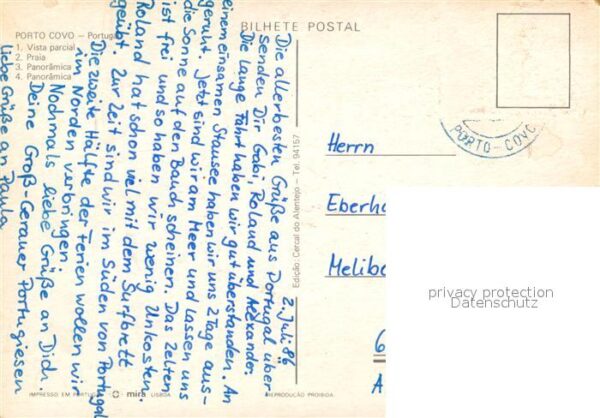 PORTO COVO – Portugal
1. Vista parcial
2. Praia
3. Panorâmica
4. Panorâmica
BILHETE POSTAL
2. Juli 86
Die allerbesten Grüße aus Portugal über-
senden Dir Gabi, Roland und Alexander.
Die lange Fahrt haben wir gut überstanden. An
einem einsamen Stausee haben wir uns 2 Tage aus-
geruht. Jetzt sind wir am Meer und lassen uns
die Sonne auf den Bauch scheinen. Das Zelten
ist frei und so haben wir wenig Unkosten.
Roland hat schon viel mit dem Surfbrett
geübt. Zur Zeit sind wir im Süden von Portugal
Die zweite Hälfte der Ferien wollen wir
im Norden verbringen.
Nochmals liebe Grüße an Dich.
Deine Groß-Gerauer Portugiesen
liebe Grüße an Paula
Edição: Cercal do Alentejo – Tel. 94157
PORTO-COVO
Herrn
Eberha
Melibo
6
A
privacy protection
Datenschutz
IMPRESSO EM PORTUGAL
mira
LISBOA
REPRODUÇÃO PROIBIDA